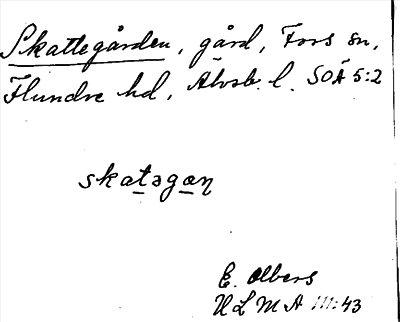 Skattegården, gård, Fors sn,
Flundre hd, Älvsb. l. SOÄ 5:2
skatǝgan
E. Olbers
ULMA 111:43